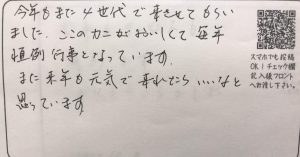 今年もまた4世代で来させてもらい
ました。ここのカニがおいしくて毎年
恒例行事となっています。
また来年も元気で来れたらいいなと
思っています
スマホでも投稿
OK！チェック欄
記入後フロント
へお渡し下さい。